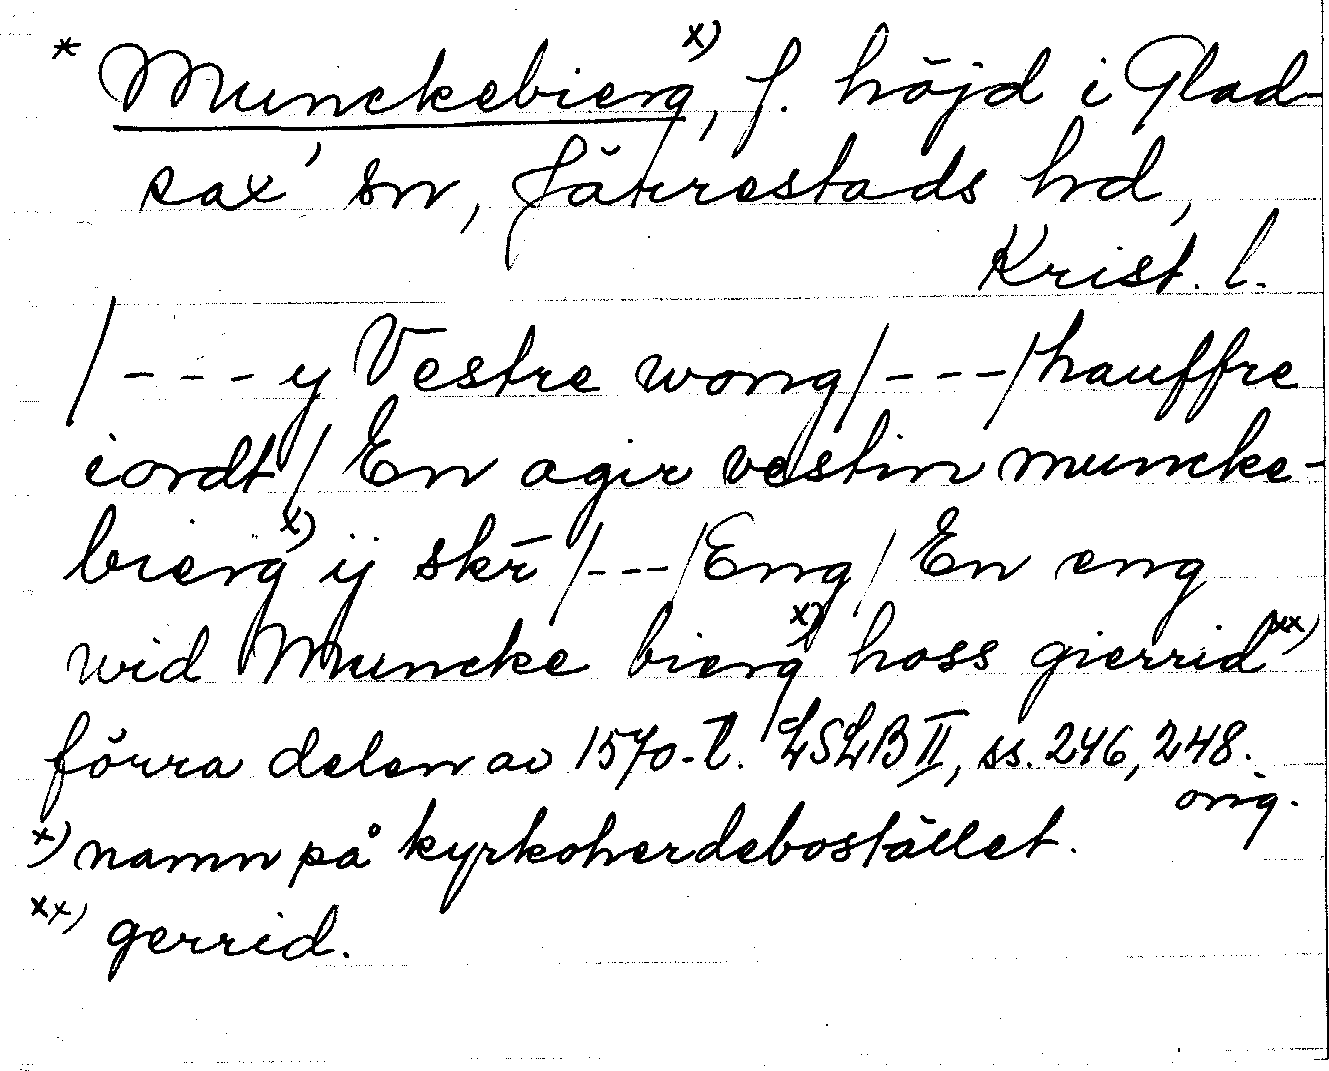 * Munckebierg x), f. höjd i Glad-
sax' sn, Järrestads hd,
Krist. l.
/ - - - y Vestre wong / - - - / hauffre
iordt / En agir vestin muncke-
bierg x) ij skr̄ / - - - / Eng / En eng
wid Muncke bierg x) hoss gierrid xx)
förra delen av 1570-t. LSLB II, ss. 246, 248.
orig.
x) namn på kyrkoherdebostället.
xx) gerrid.